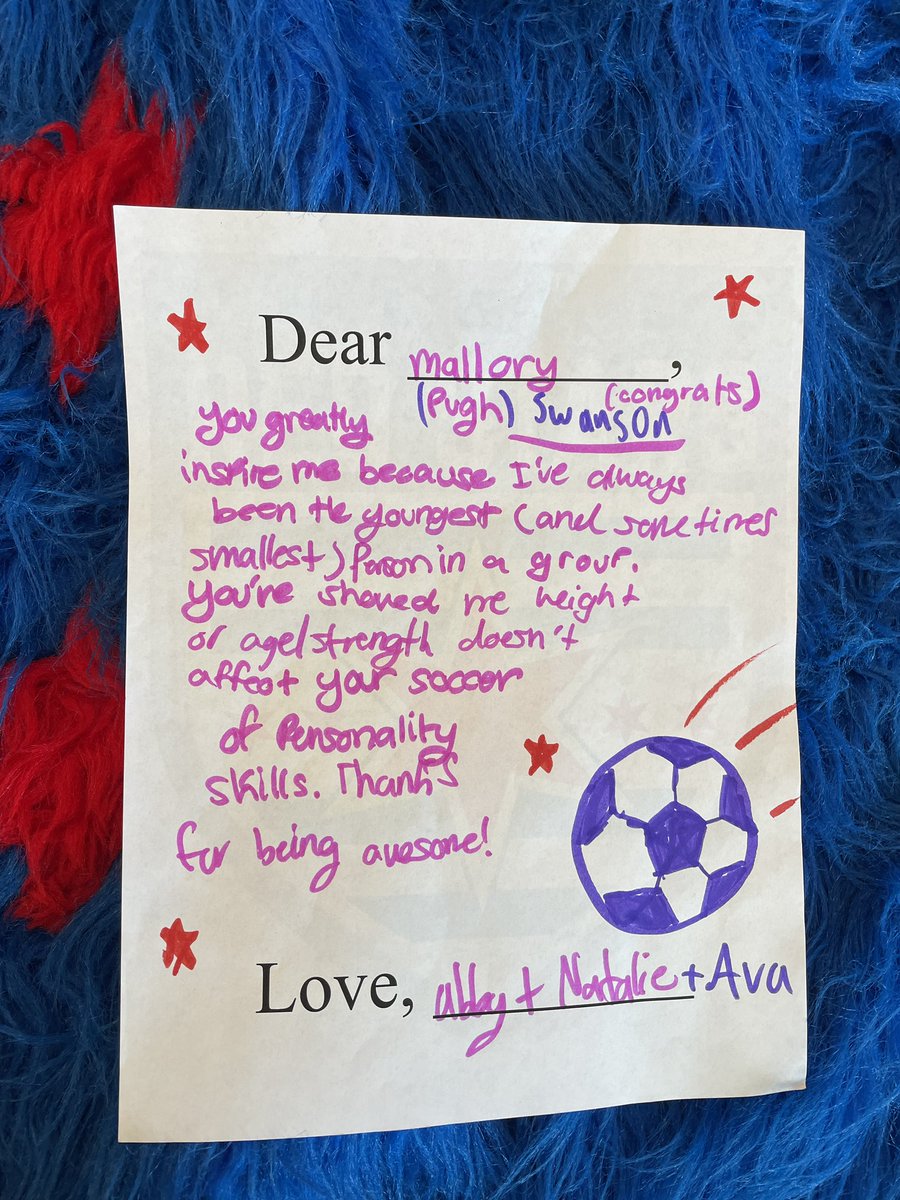 Dear mallory,
(Pugh) Swanson (congrats)
You greatly
inspire me because I've always
been the youngest (and sometimes
smallest) person in a group.
You're showed me height
or age/strength doesn't
affect your soccer
of Personality
skills. Thanks
for being awesome!
Love, abby + Natalie + Ava